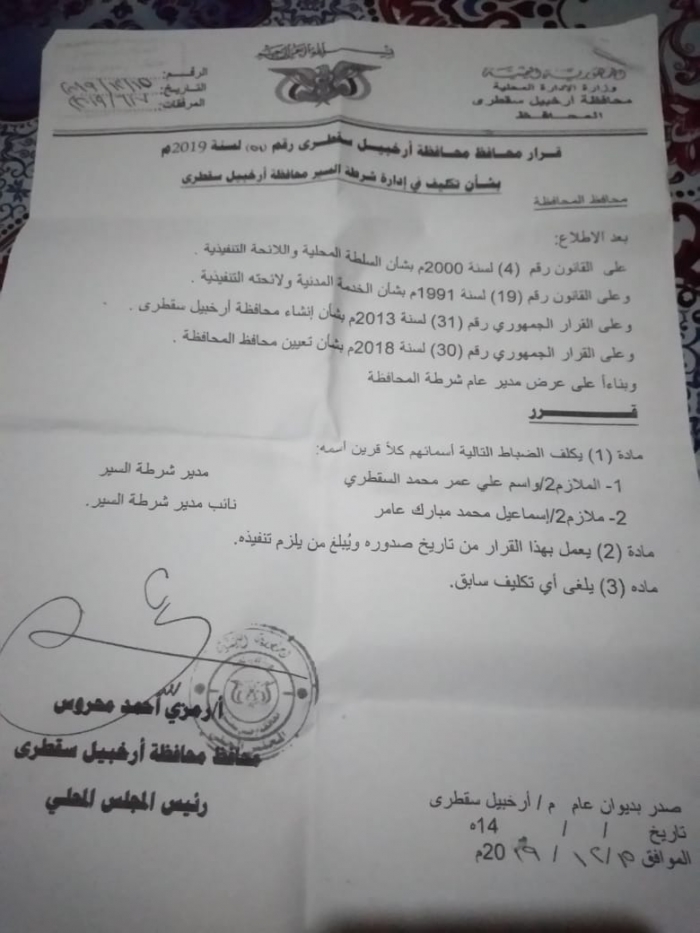 بسم الله الرحمن الرحيم
الجمهورية اليمنية
وزارة الإدارة المحلية
محافظة أرخبيل سقطرى
المحافظ
الرقم:
التاريخ:
المرفقات:
قرار محافظ محافظة أرخبيل سقطرى رقم لسنة 2019م
بشأن تكليف في إدارة شرطة السير محافظة أرخبيل سقطرى
محافظ المحافظة
بعد الاطلاع:
على القانون رقم (4) لسنة 2000م بشأن السلطة المحلية واللائحة التنفيذية .
وعلى القانون رقم (19) لسنة 1991م بشأن الخدمة المدنية ولائحته التنفيذية .
وعلى القرار الجمهوري رقم (31) لسنة 2013م بشأن إنشاء محافظة أرخبيل سقطرى .
وعلى القرار الجمهوري رقم (30) لسنة 2018م بشأن تعيين محافظ المحافظة .
وبناءاً على عرض مدير عام شرطة المحافظة
قــــــرر
مادة (1) يكلف الضباط التالية أسمائهم كلاً قرين أسمه:
1- الملازم2/واسم علي عمر محمد السقطري مدير شرطة السير
2- ملازم2/إسماعيل محمد مبارك عامر نائب مدير شرطة السير.
مادة (2) يعمل بهذا القرار من تاريخ صدوره ويُبلغ من يلزم تنفيذه.
ماده (3) يلغى أي تكليف سابق.
أ/رمزي أحمد محروس
محافظ محافظة أرخبيل سقطرى
رئيس المجلس المحلي
صدر بديوان عام م/ أرخبيل سقطرى
تاريخ / / 14ه
الموافق / ١٢ / 20م